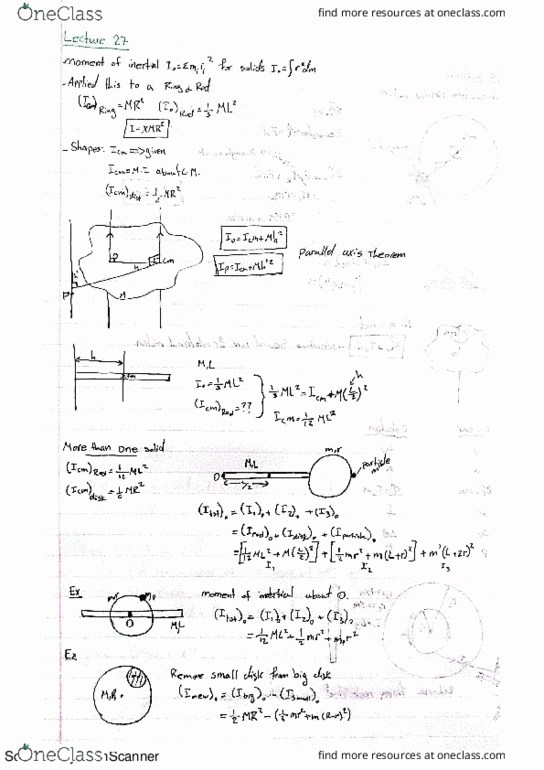 OneClass
find more resources at oneclass.com
Lecture 27
moment of inertial I₀=Σmᵢrᵢ² for solids I₀=∫r²dm
-Applied this to a Ring & Rod
(I₀)Ring=MR² (I₀)Rod=1/3 ML²
I=XMR²
- Shapes: Icm => given
Icm=M.I about C.M.
(Icm)disk=1/2 MR²
I₀=Icm+Mh²
Ip=Icm+Mh'²
Parallel axis Theorem
cm
h
M
P
h
cm
M,L
I₀=1/3 ML²
(Icm)Rod=??
1/3 ML²=Icm+M(L/2)²
h
Icm=1/12 ML²
More than one solid
(Icm)Rod=1/12 ML²
(Icm)disk=1/2 MR²
O
M,L
L/2
m,r
particle
(Itot)₀=(I₁)₀+(I₂)₀+(I₃)₀
=(Irod)₀+(Idisk)₀+(Iparticle)₀
=[1/12 ML²+M(L/2)²]+[1/2 mr²+m(L+r)²]+m'(L+2r)²
I₁ I₂ I₃
Ex
O
M,L
moment of inertial about O.
(Itot)₀=(I₁)₀+(I₂)₀+(I₃)₀
=1/12 ML²+1/2 mr²+m₀r²
Ex
M,R
Remove small disk from big disk
(Inew)₀=(Ibig)₀-(Ismall)₀
=1/2 MR²-(1/2 mr²+m(R-r)²)
OneClass
Scanner
find more resources at oneclass.com